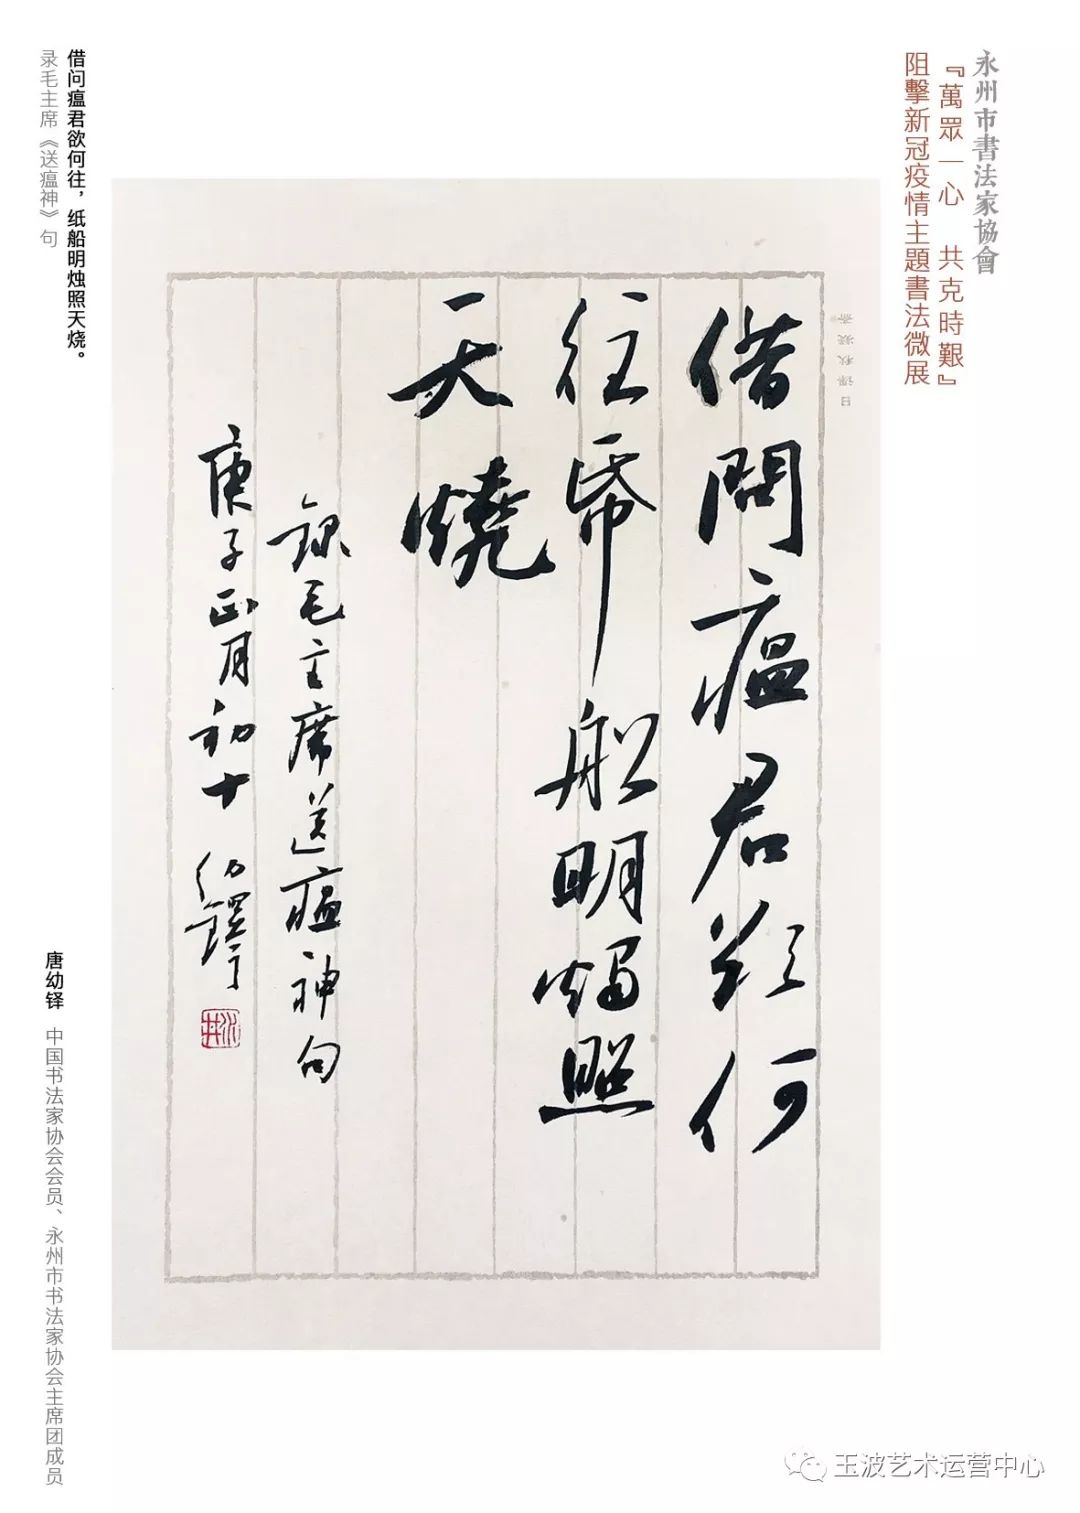 永州市書法家協會
『萬眾一心 共克時艱』
阻擊新冠疫情主題書法微展
借問瘟君欲何
往帋船明燭照
天燒
錄毛主席送瘟神句
庚子正月初十 幼鐸
借问瘟君欲何往，纸船明烛照天烧。
录毛主席《送瘟神》句
唐幼铎 中国书法家协会会员、永州市书法家协会主席团成员
玉波艺术运营中心